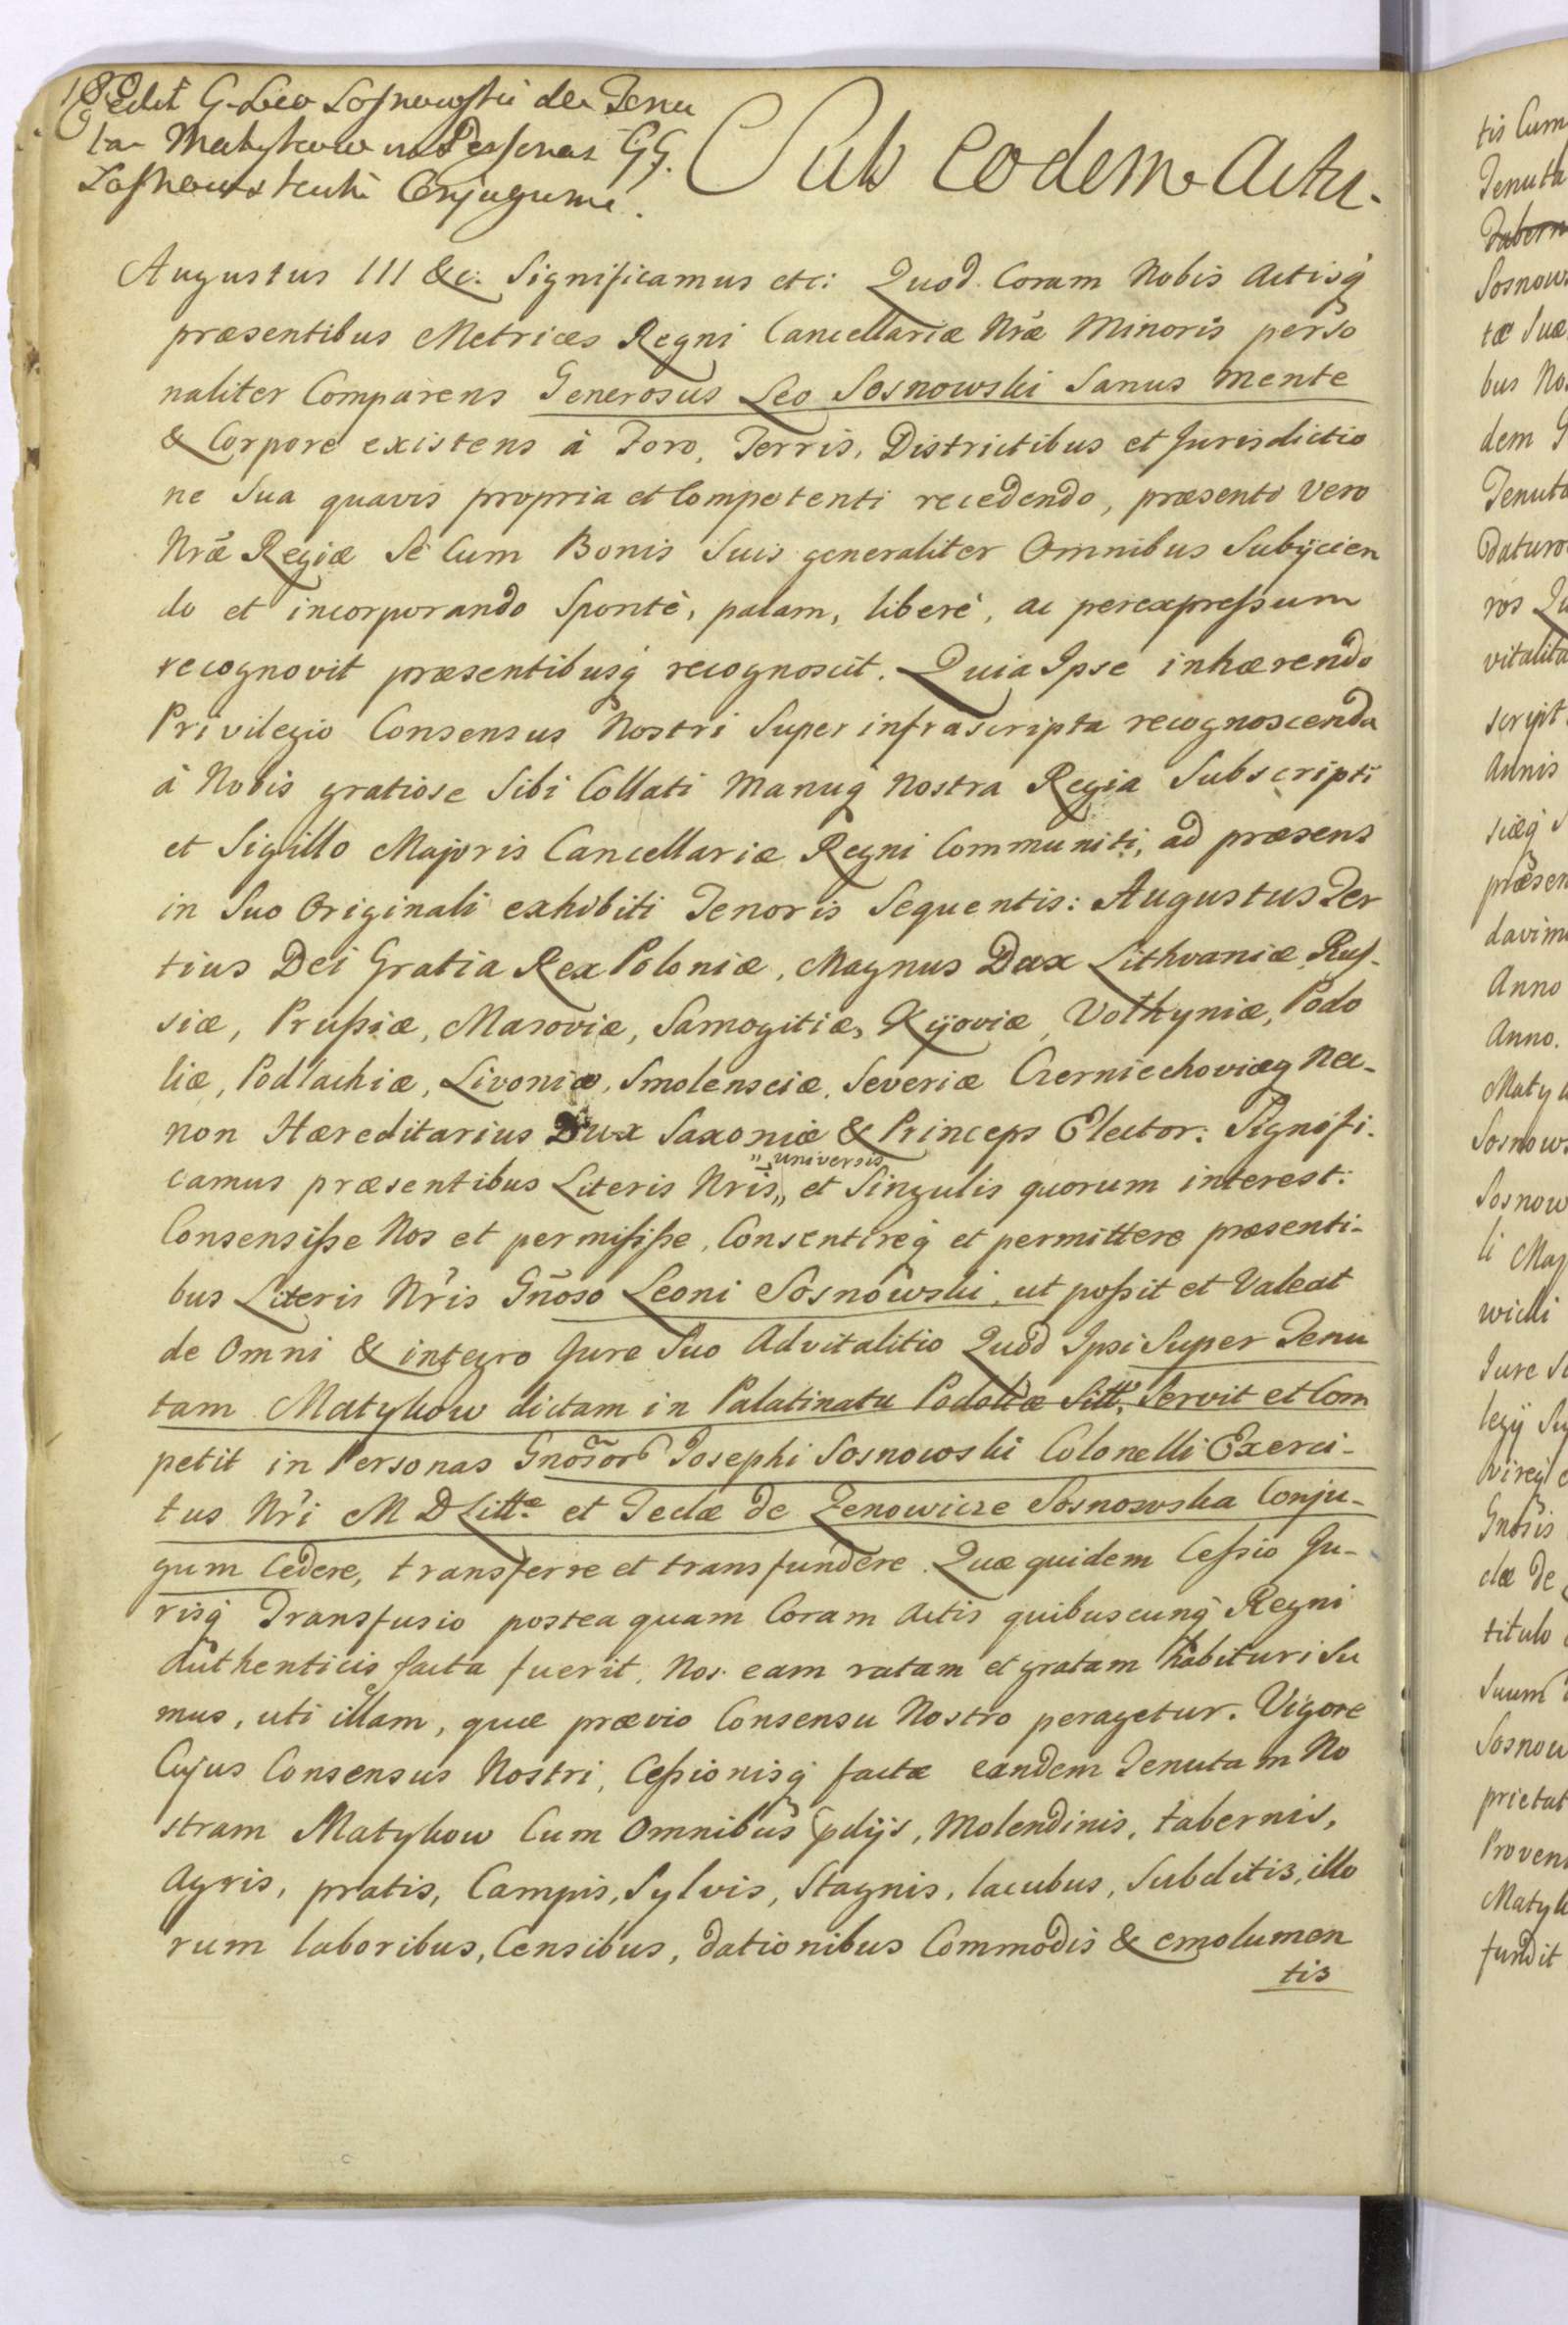 180
Cedit G. Leo Sosnowski de Tenu
ta Matykow in Personas GG.
Sosnowskich Conjugum.
Sub eodem Actu.
Augustus III &c: Significamus etc: Quod Coram Nobis Actisq́
præsentibus Metrices Regni Cancellariæ Nræ Minoris perso
naliter Comparens Generosus Leo Sosnowski Sanus mente
& Corpore existens à Foro, Terris, Districtibus et Jurisdictio
ne Sua quavis propria et Competenti recedendo, præsenti vero
Nræ Regiæ Se Cum Bonis Suis generaliter Omnibus Subijcien
do et incorporando Spontè, palam, liberè, ac perexpressum
recognovit præsentibusq́ recognoscit. Quia Ipse inhærendo
Privilegio Consensus Nostri Super infrascripta recognoscenda
à Nobis gratiose Sibi Collati Manuq́ Nostra Regia Subscripti
et Sigillo Majoris Cancellariæ Regni Communiti, ad præsens
in Suo Originali exhibiti Tenoris Sequentis: Augustus Ter
tius Dei Gratia Rex Poloniæ, Magnus Dux Lithvaniæ Rus-
siæ, Prussiæ, Masoviæ, Samogitiæ, Kijoviæ, Volhyniæ, Podo
liæ, Podlachiæ, Livoniæ, Smolensciæ, Severiæ Czerniechoviæq́ Nec-
non Hæreditarius Dux Saxoniæ & Princeps Elector: Signifi-
camus præsentibus Literis Nris „ universis et Singulis quorum interest:
Consensisse Nos et permisisse, Consentireq́ et permittere præsenti-
bus Literis Nris Gnoso Leoni Sosnowski, ut possit et Valeat
de Omni & integro Jure Suo Advitalitio Quod Ipsi Super Tenu
tam Matykow dictam in Palatinatu Podoliæ Sittm, Servit et Com
petit in Personas Gnosor Josephi Sosnowski Colonelli Exerci-
tus Nri M D Littæ et Teclæ de Zenowicze Sosnowska Conju-
gum Cedere, transferre et transfundere. Quæ quidem Cessio Ju-
risq́ Transfusio postea quam Coram Actis quibuscunq́ Regni
Authenticis facta fuerit, Nos eam ratam et gratam habituri Su
mus, uti illam, quæ prævio Consensu Nostro peragetur. Vigore
Cujus Consensus Nostri, Cessionisq́ factæ eandem Tenutam No
stram Matykow Cum Omnibus pdijs, Molendinis, tabernis,
Agris, pratis, Campis, Sylvis, Stagnis, lacubus, Subditis, illo
rum laboribus, Censibus, dationibus Commodis & emolumen
tis